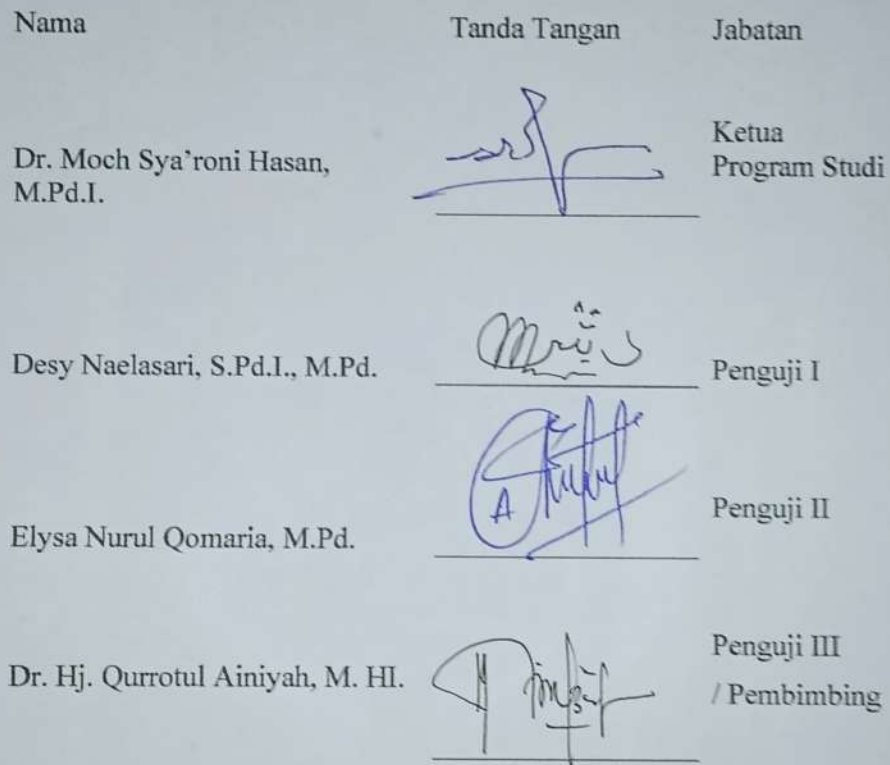 Nama Tanda Tangan Jabatan
Dr. Moch Sya'roni Hasan,
M.Pd.I.
Ketua
Program Studi
Desy Naelasari, S.Pd.I., M.Pd. Penguji I
Elysa Nurul Qomaria, M.Pd. Penguji II
Dr. Hj. Qurrotul Ainiyah, M. HI.
Penguji III
/ Pembimbing